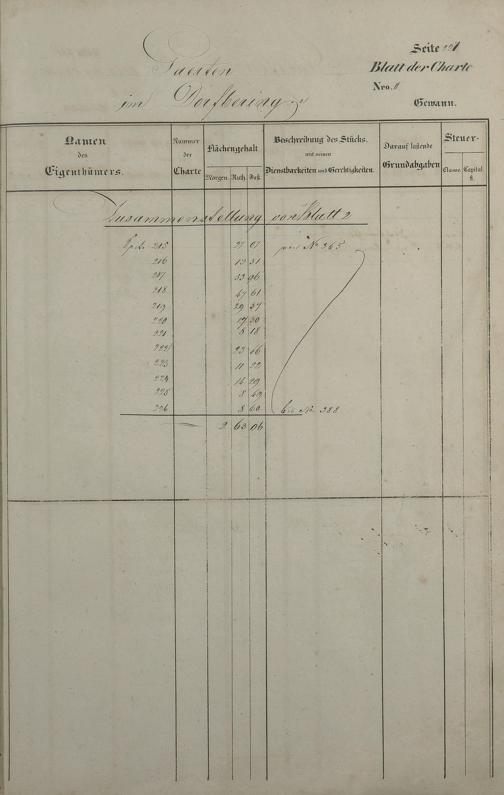 Seite
Blatt der Charte
Nro. II
Gewann.
im Dorfbering
Namen des Eigenthümers.
Nummer der Charte
Flächengehalt
Morgen. Ruth. Fuß.
Beschreibung des Stücks.
mit seinen
Dienstbarkeiten und Gerechtigkeiten.
Darauf lastende Grundabgaben
Steuer-
Classe. Capital fl.
Zusammenstellung von Blatt 2
215 27 07 von No 365
216 12 31
217 33 96
218 67 61
219 29 37
220 17 30
221 8 18
222 23 16
223 11 22
224 14 29
225 8 49
226 8 60 bis No 388
2 63 06